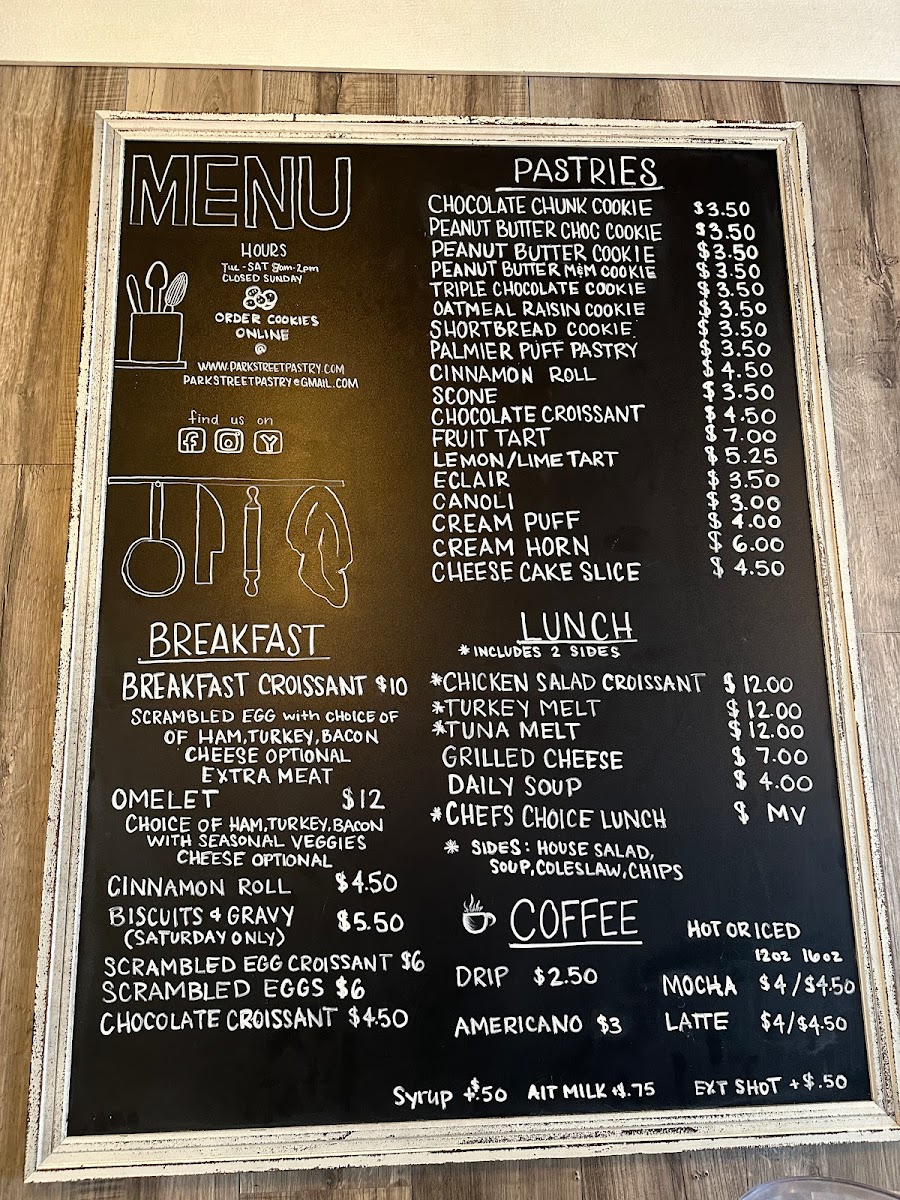 MENU
HOURS
Tue - SAT 8am-2pm
CLOSED SUNDAY
ORDER COOKIES
ONLINE
@
WWW.PARKSTREETPASTRY.COM
PARKSTREETPASTRY@GMAIL.COM
find us on
BREAKFAST
BREAKFAST CROISSANT $10
SCRAMBLED EGG with CHOICE OF
OF HAM, TURKEY, BACON
CHEESE OPTIONAL
EXTRA MEAT
OMELET $12
CHOICE OF HAM, TURKEY, BACON
WITH SEASONAL VEGGIES
CHEESE OPTIONAL
CINNAMON ROLL $4.50
BISCUITS & GRAVY $5.50
(SATURDAY ONLY)
SCRAMBLED EGG CROISSANT $6
SCRAMBLED EGGS $6
CHOCOLATE CROISSANT $4.50
PASTRIES
CHOCOLATE CHUNK COOKIE $3.50
PEANUT BUTTER CHOC COOKIE $3.50
PEANUT BUTTER COOKIE $3.50
PEANUT BUTTER M&M COOKIE $3.50
TRIPLE CHOCOLATE COOKIE $3.50
OATMEAL RAISIN COOKIE $3.50
SHORTBREAD COOKIE $3.50
PALMIER PUFF PASTRY $3.50
CINNAMON ROLL $4.50
SCONE $3.50
CHOCOLATE CROISSANT $4.50
FRUIT TART $7.00
LEMON/LIME TART $5.25
ECLAIR $3.50
CANOLI $3.00
CREAM PUFF $4.00
CREAM HORN $6.00
CHEESE CAKE SLICE $4.50
LUNCH
* INCLUDES 2 SIDES
*CHICKEN SALAD CROISSANT $12.00
*TURKEY MELT $12.00
*TUNA MELT $12.00
GRILLED CHEESE $7.00
DAILY SOUP $4.00
*CHEFS CHOICE LUNCH $ MV
* SIDES: HOUSE SALAD,
SOUP, COLESLAW, CHIPS
COFFEE
HOT OR ICED
12oz 16oz
DRIP $2.50
MOCHA $4/$4.50
AMERICANO $3
LATTE $4/$4.50
Syrup +$.50 AlT MILK +$.75 EXT SHOT +$.50